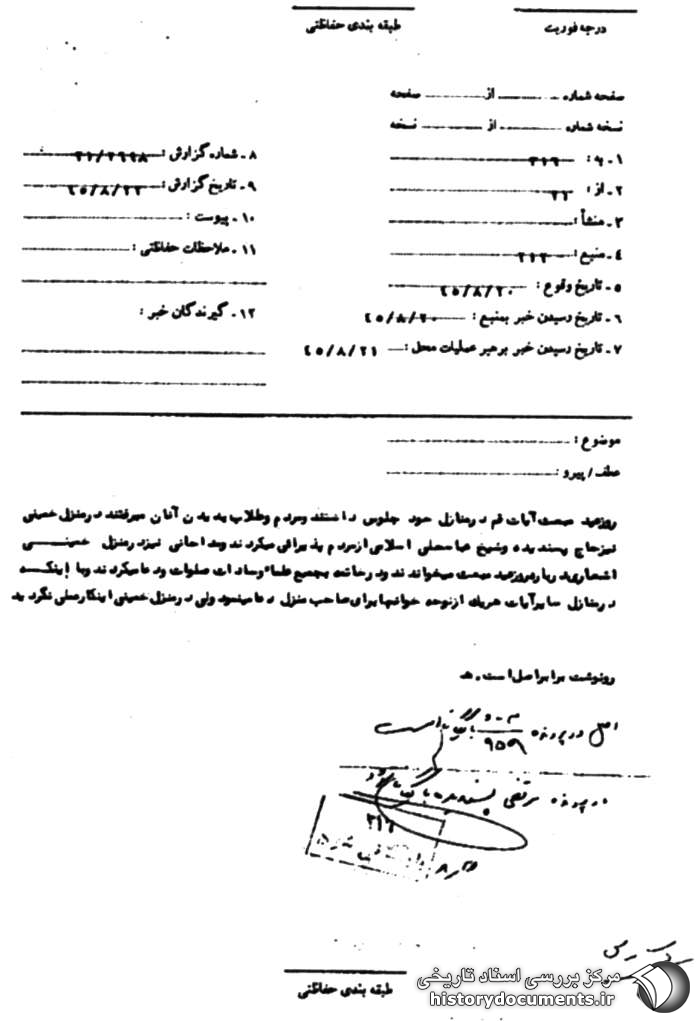 درجه فوریت
طبقه بندی حفاظتی
صفحه شماره از صفحه
نسخه شماره از نسخه
۱- به : ۳۱۶
۲- از : ۲۱
۳- منشأ :
۴- منبع : ۲۱۲
۵- تاریخ وقوع : ۴۵/۸/۲۰
۶- تاریخ رسیدن خبر بمنبع : ۴۵/۸/۲۰
۷- تاریخ رسیدن خبر برهبر عملیات محل : ۴۵/۸/۲۱
۸- شماره گزارش : ۲۱/۲۹۹۸
۹- تاریخ گزارش : ۴۵/۸/۲۲
۱۰- پیوست :
۱۱- ملاحظات حفاظتی :
۱۲- گیرندگان خبر :
موضوع :
عطف / پیرو :
روزعید مبعث آیات قم در منازل خود جلوس داشتند ومردم وطلاب بدیدن آنان میرفتند در منزل خمینی
نیز حاج پسندیده وشیخ عباسعلی اسلامی از مردم پذیرائی میکردند ومداحانی نیز در منزل خمینی
اشعاری درباره روزعید مبعث میخواندند ودرخاتمه بجمیع علماء وسادات صلوات ودعا میکردند وبا اینکه
در منازل سایر آیات هریک از نوحه خوانها برای صاحب منزل دعا مینمود ولی در منزل خمینی اینکار عملی نگردید
رونوشت برابر اصل است . هـ
اصل در پرونده م - د بایگانی است
۹۵۹
در پرونده مرتضی پسندیده بایگانی شود
۳۱۶
طبقه بندی حفاظتی
مرکز بررسی اسناد تاریخی
historydocuments.ir